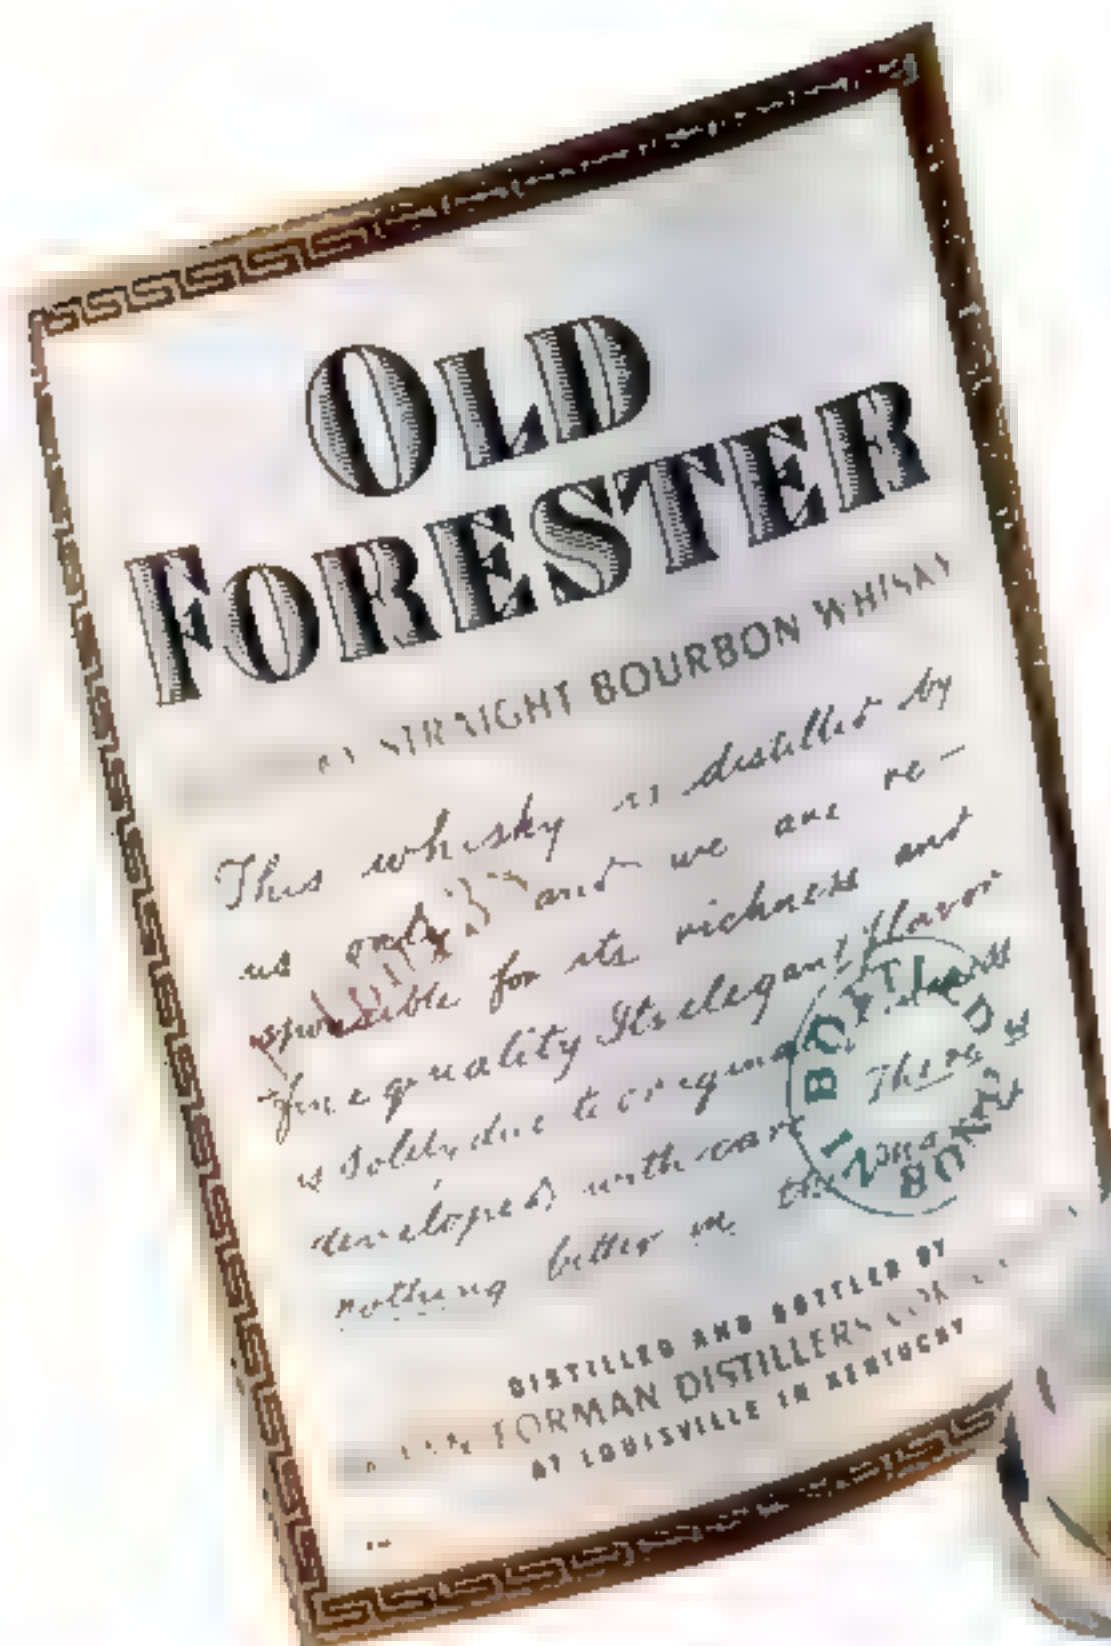 OLD
FORESTER
KY STRAIGHT BOURBON WHISKY
This whisky is distilled by
us only and we are re-
sponsible for its richness and
fine quality Its elegant flavor
is solely due to original
developed with care There is
nothing better in the
BOTTLED IN BOND
DISTILLED AND BOTTLED BY
FORMAN DISTILLERS
AT LOUISVILLE IN KENTUCKY